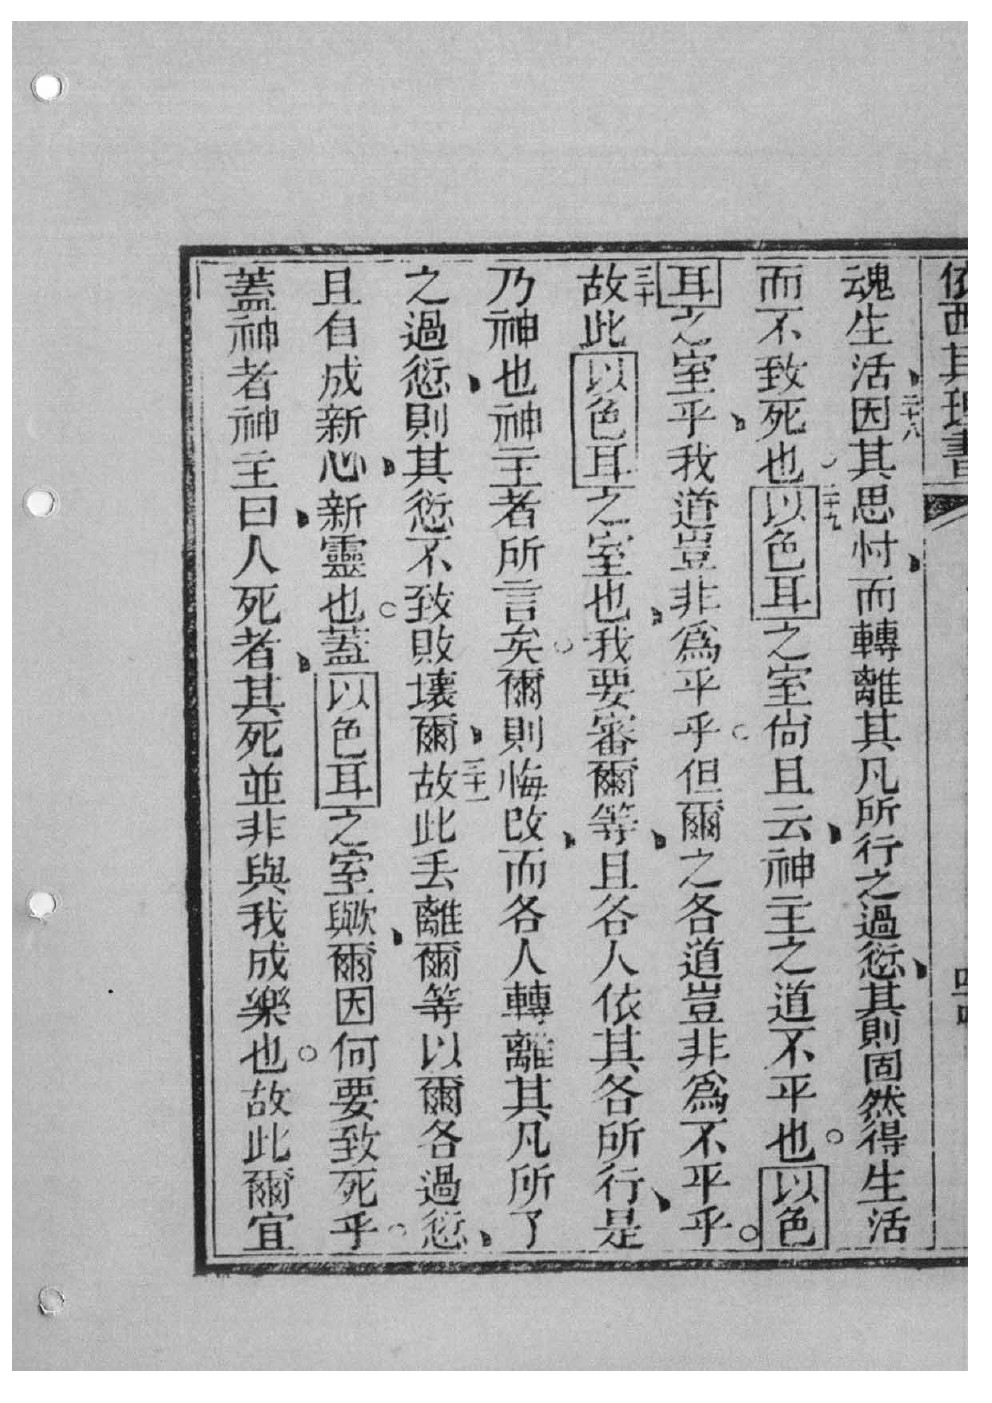 依西其理書
魂生活二十八因其思忖而轉離其凡所行之過愆其則固然得生活
而不致死也二十九以色耳之室尙且云神主之道不平也以色
耳之室乎我道豈非爲平乎但爾之各道豈非爲不平乎
三十故此以色耳之室也我要審爾等且各人依其各所行是
乃神也神主者所言矣爾則悔改而各人轉離其凡所了
之過愆則其愆不致敗壞爾三十一故此丢離爾等以爾各過愆
且自成新心新靈也蓋以色耳之室歟爾因何要致死乎
蓋神者神主曰人死者其死並非與我成樂也故此爾宜